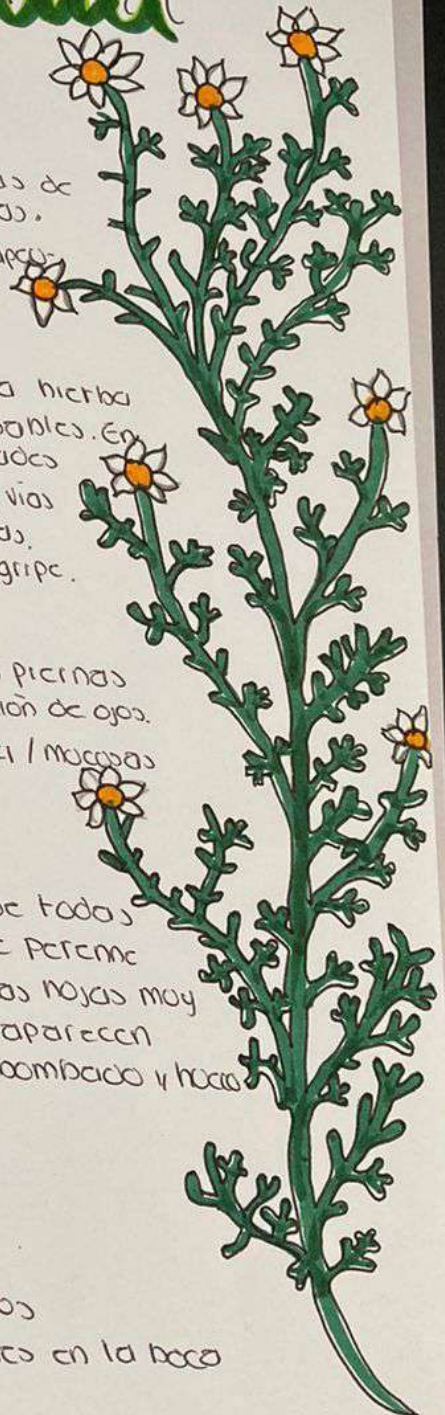 as de
as.
a hierba
ables. En
ades
vias
as.
gripe.
piernas
ión de ojos.
/ mucosas
e todas
perenne
as hojas muy
aparecen
bombado y hueco
os
es en la boca